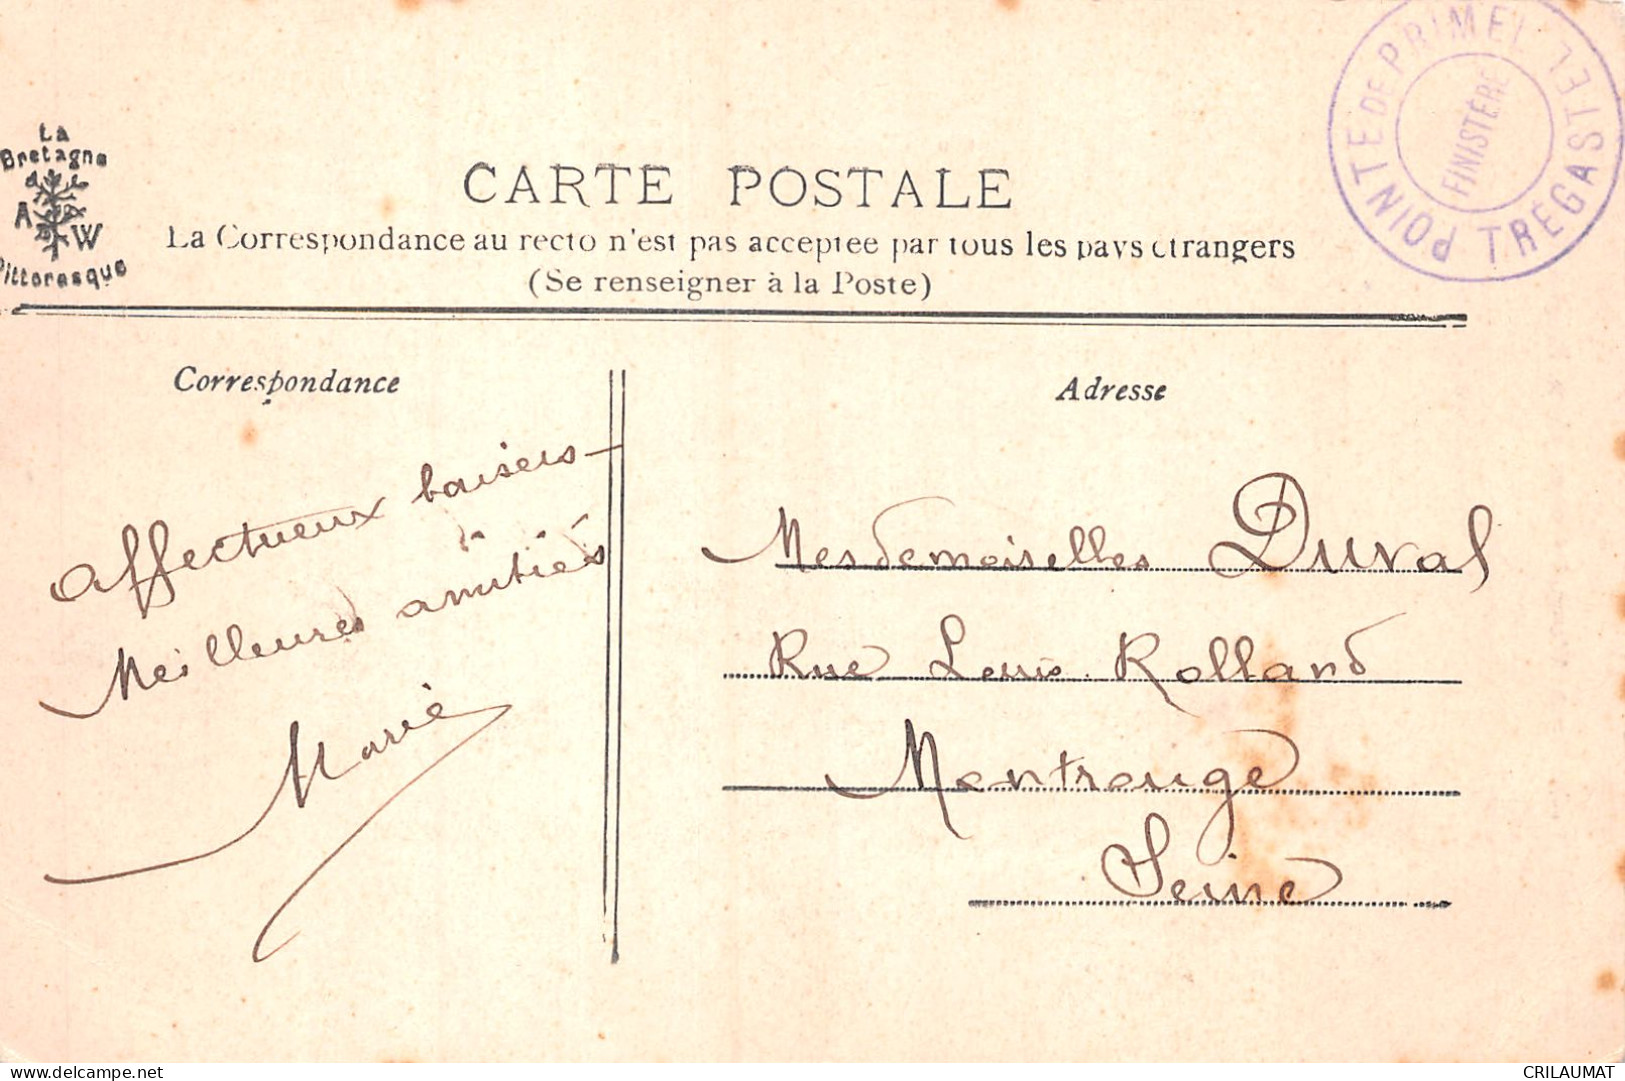 La
Bretagne
A W
Pittoresque
POINTE DE PRIMEL TRÉGASTEL
FINISTÈRE
CARTE POSTALE
La Correspondance au recto n'est pas acceptée par tous les pays étrangers
(Se renseigner à la Poste)
Correspondance
Adresse
Affectueux baisers
Meilleures amitiés
Marie
Mesdemoiselles Duval
Rue Louis Rolland
Montrouge
Seine
www.delcampe.net
CRILAUMAT